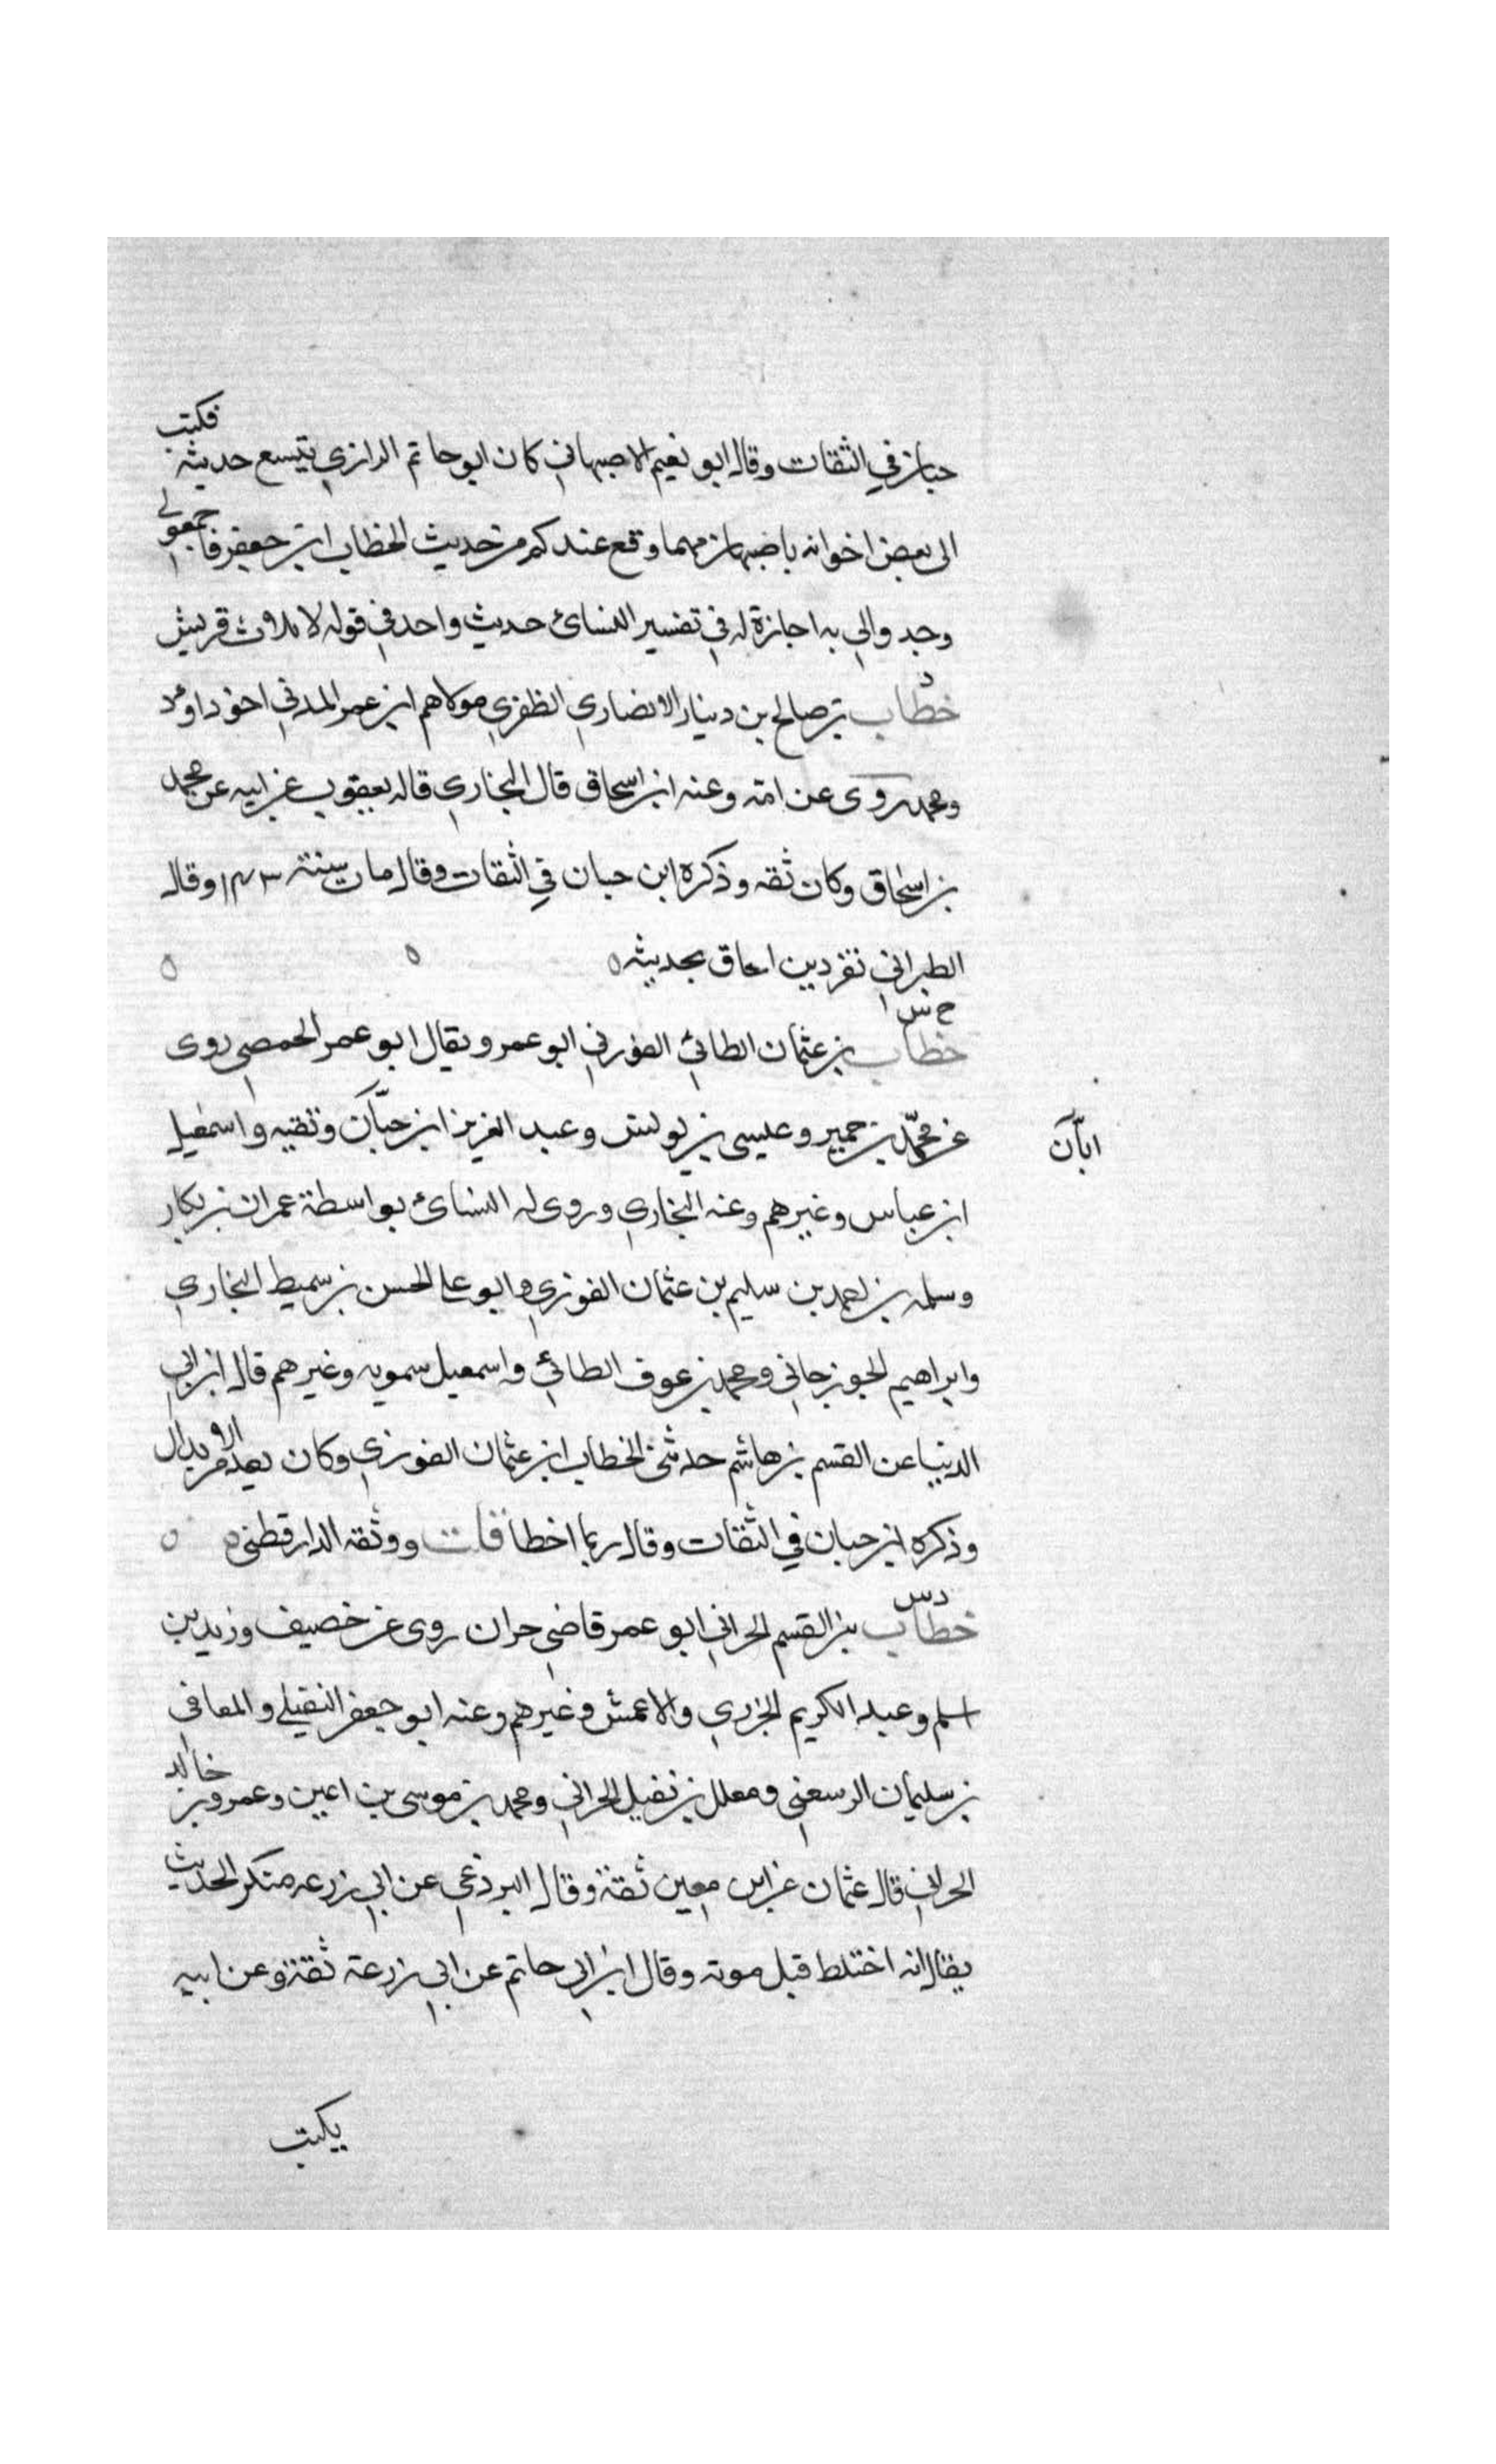 حبان في الثقات وقال ابو نعيم الاصبهاني كان ابو حاتم الرازي يتتبع حديثه فكتب
الى بعض اخوانه باصبهان مهما وقع عندكم من حديث الخطاب ابن جعفر فاجمعو لي
وجدوا لي به اجازة له في تفسير النسائ حديث واحد في قوله لايلاف قريش
د
خطاب بن صالح بن دينار الانصاري الظفري مولاهم ابن عمر المدني اخو داود
ومحمد روى عن امه وعنه ابن اسحاق قال البخاري قاله يعقوب عن ابيه عن محمد
بن اسحاق وكان ثقه وذكره ابن حبان في الثقات وقال مات سنة ١٤٣ وقال
الطبراني تفرد بن اسحاق بحديثه
خ س
خطاب بن عثمان الطائي الفوزني ابو عمرو يقال ابو عمر الحمصي روى
عن محمد بن حمير وعيسى بن يونس وعبد العزيز ابن حبان وبقيه واسمعيل
ابان
ابن عباس وغيرهم وعنه البخاري وروى له النسائ بواسطة عمران بن بكار
وسلمه بن احمد بن سليم بن عثمان الفوزي وابو علي الحسن بن سميط البخاري
وابراهيم الجوزجاني ومحمد بن عوف الطائي واسمعيل سمويه وغيرهم قال ابن ابي
الدنيا عن القسم بن هاشم حدثني الخطاب ابن عثمان الفوزي وكان يعد من الابدال
وذكره ابن حبان في الثقات وقال ربما اخطا قلت ووثقه الدارقطني
د س
خطاب بن القسم الحراني ابو عمر قاضي حران روى عن خصيف وزيد بن
اسلم وعبد الكريم الجزري والاعمش وغيرهم وعنه ابو جعفر النفيلي والمعافى
بن سليمان الرسعني ومعلل بن نفيل الحراني ومحمد بن موسى بن اعين وعمرو بن خالد
الحراني قال عثمان عن ابن معين ثقة وقال البرذعي عن ابي زرعه منكر الحديث
يقال انه اختلط قبل موته وقال ابن ابي حاتم عن ابي زرعة ثقة وعن ابيه
يكتب